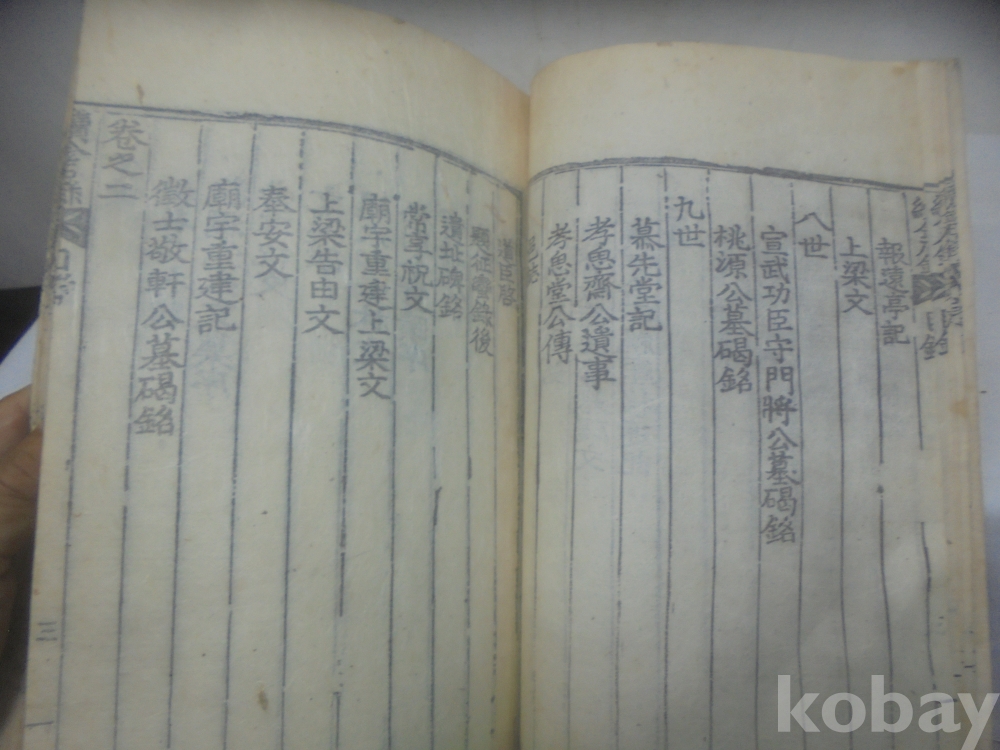 報遠亭記
上梁文
八世
宣武功臣守門將公墓碣銘
桃源公墓碣銘
九世
慕先堂記
孝思齋公遺事
孝思堂公傳
遺址碑銘
常享祝文
廟宇重建上梁文
上梁告由文
奉安文
廟宇重建記
徵士敬軒公墓碣銘
卷之二
三
kobay